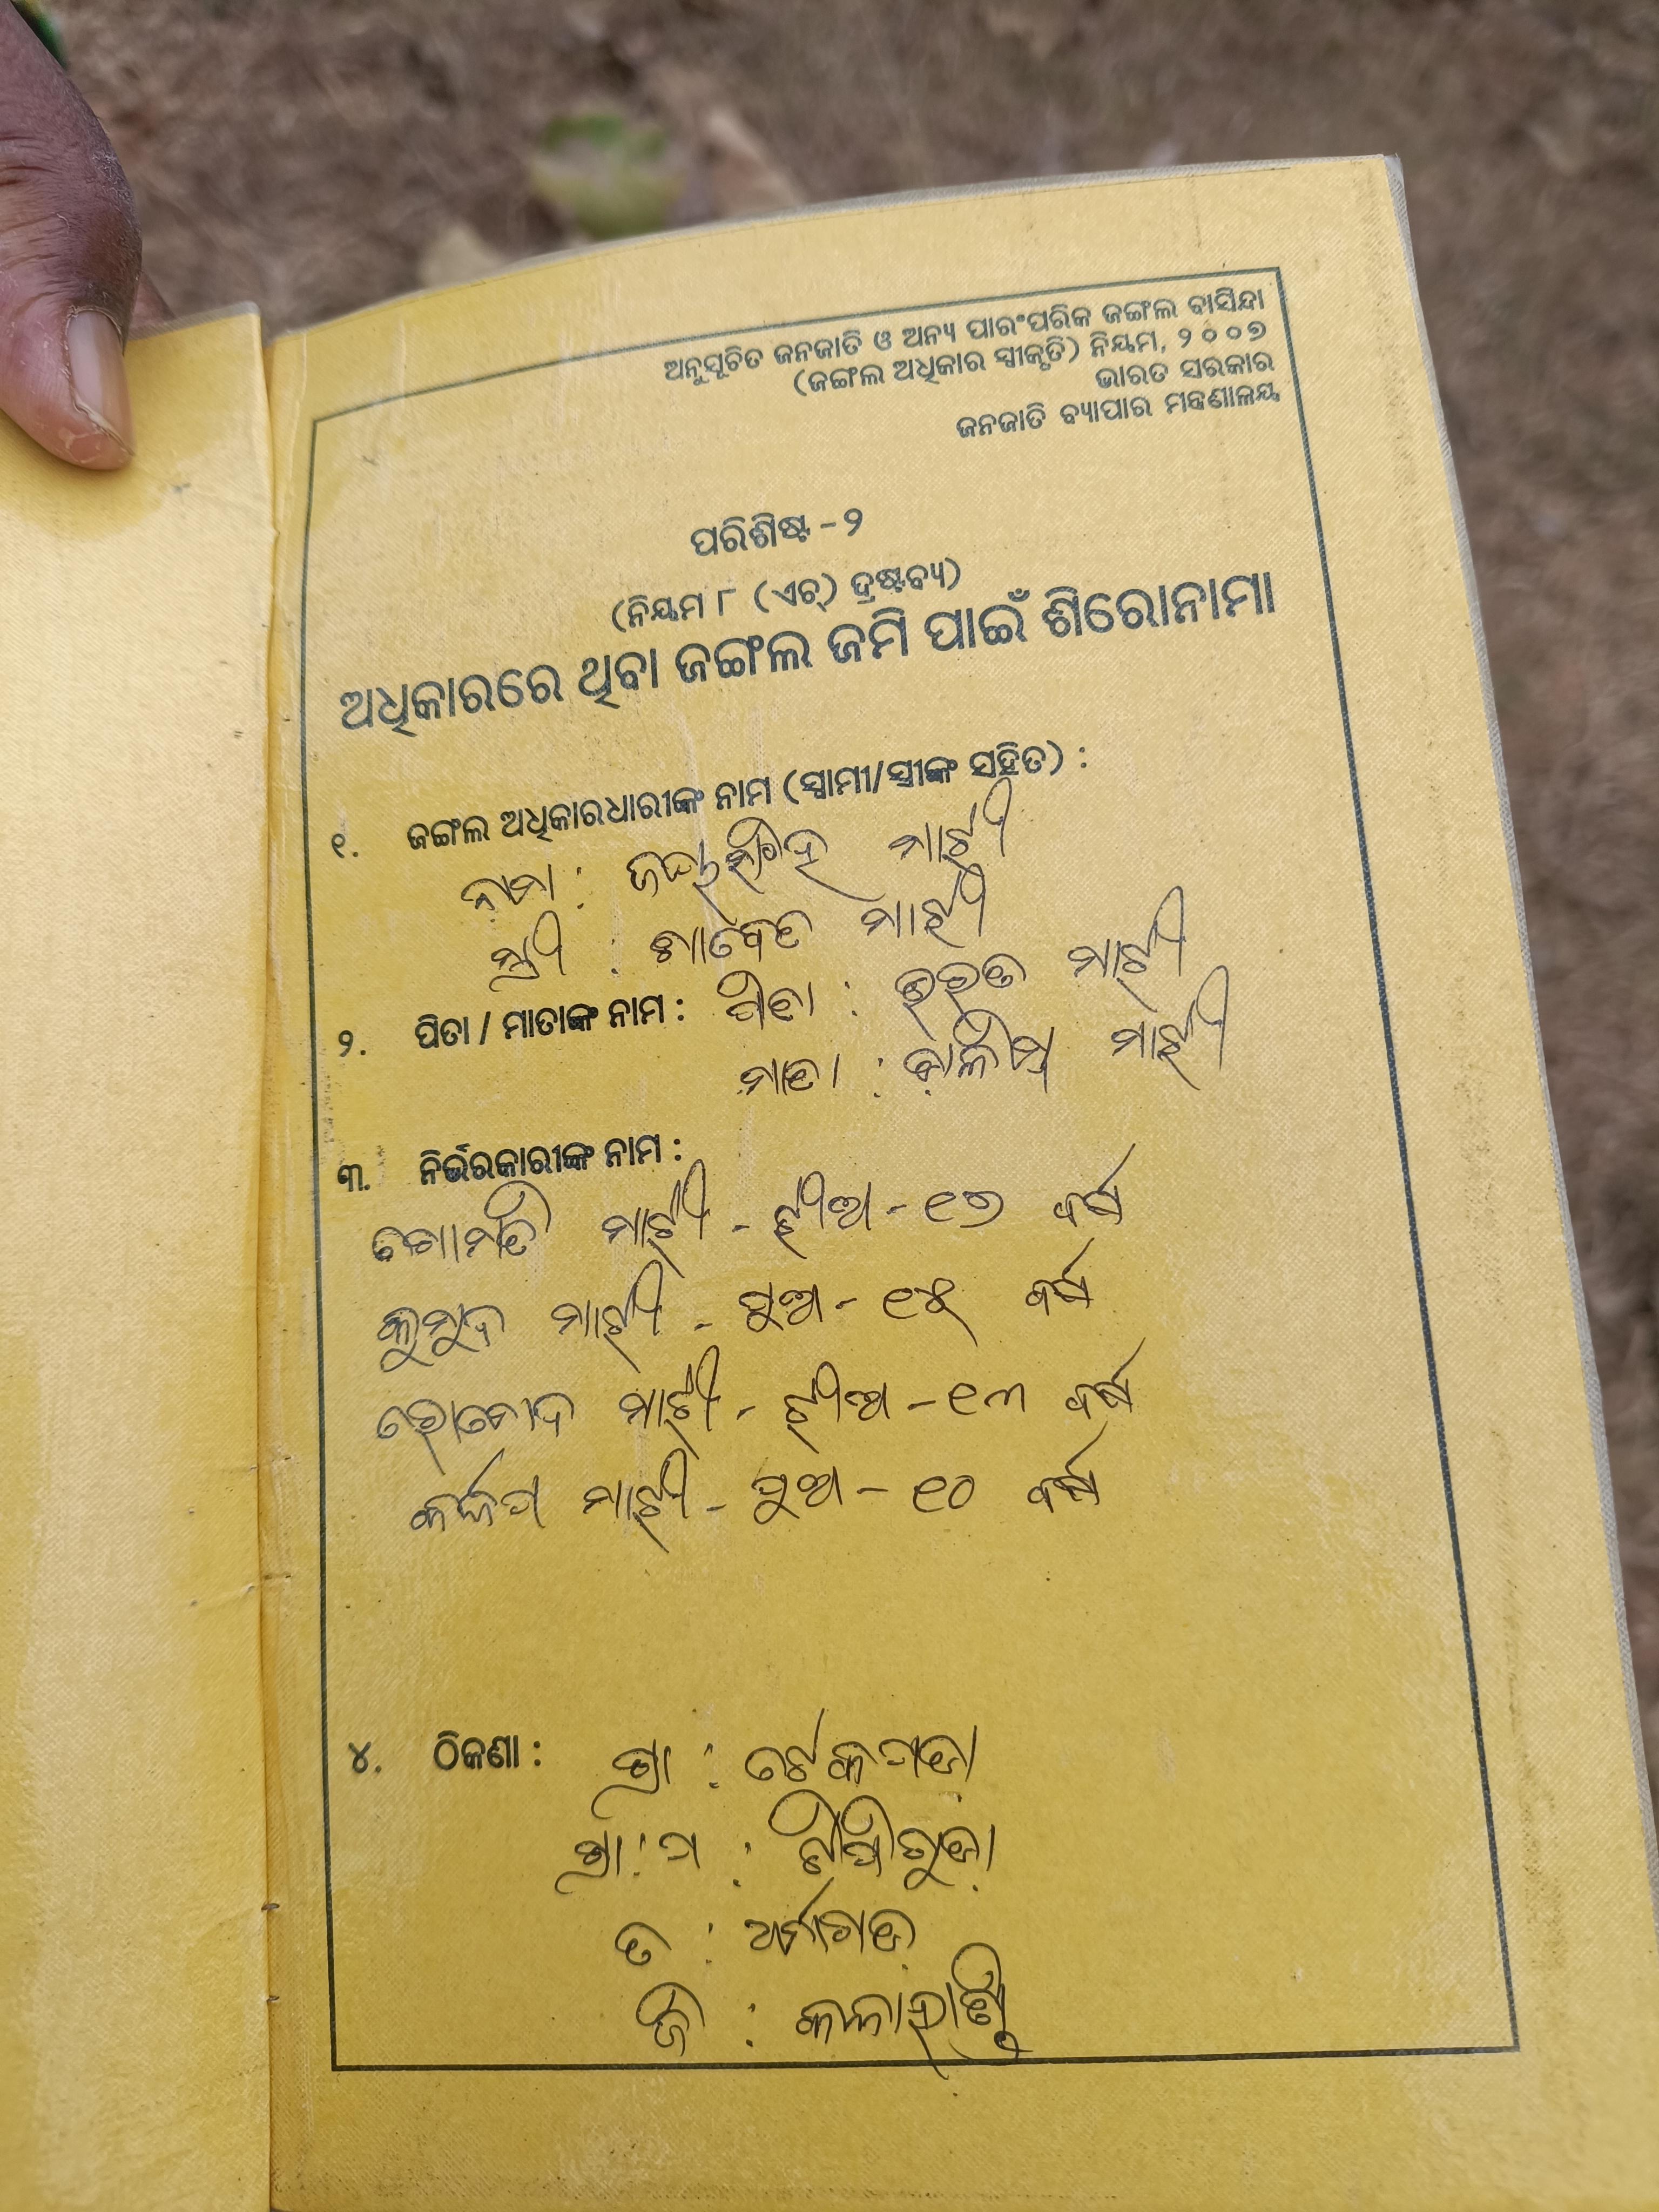 ଅନୁସୂଚିତ ଜନଜାତି ଓ ଅନ୍ୟ ପାରଂପରିକ ଜଙ୍ଗଲ ବାସିନ୍ଦା
(ଜଙ୍ଗଲ ଅଧିକାର ସ୍ୱୀକୃତି) ନିୟମ, ୨୦୦୭
ଭାରତ ସରକାର
ଜନଜାତି ବ୍ୟାପାର ମନ୍ତ୍ରଣାଳୟ
ପରିଶିଷ୍ଟ - ୨
(ନିୟମ ୮ (ଏଚ୍) ଦ୍ରଷ୍ଟବ୍ୟ)
ଅଧିକାରରେ ଥିବା ଜଙ୍ଗଲ ଜମି ପାଇଁ ଶିରୋନାମା
୧. ଜଙ୍ଗଲ ଅଧିକାରଧାରୀଙ୍କ ନାମ (ସ୍ୱାମୀ/ସ୍ତ୍ରୀଙ୍କ ସହିତ) :
ନାମ : ମାଝୀ
ସ୍ତ୍ରୀ : ମାଝୀ
୨. ପିତା / ମାତାଙ୍କ ନାମ : ପିତା : ଭରତ ମାଝୀ
ମାତା : ମାଝୀ
୩. ନିର୍ଭରକାରୀଙ୍କ ନାମ :
ଗୋମତି ମାଝୀ - ଝୀଅ - ୧୭ ବର୍ଷ
କୁମୁଦ ମାଝୀ - ପୁଅ - ୧୫ ବର୍ଷ
ମାଝୀ - ଝୀଅ - ୧୩ ବର୍ଷ
ମାଝୀ - ପୁଅ - ୧୦ ବର୍ଷ
୪. ଠିକଣା : ଗ୍ରା : ଟେକଗଡା
ଗ୍ରା.ପ :
ତ : ଥର୍ମାଗଡ
ଜି : କଳାହାଣ୍ଡି